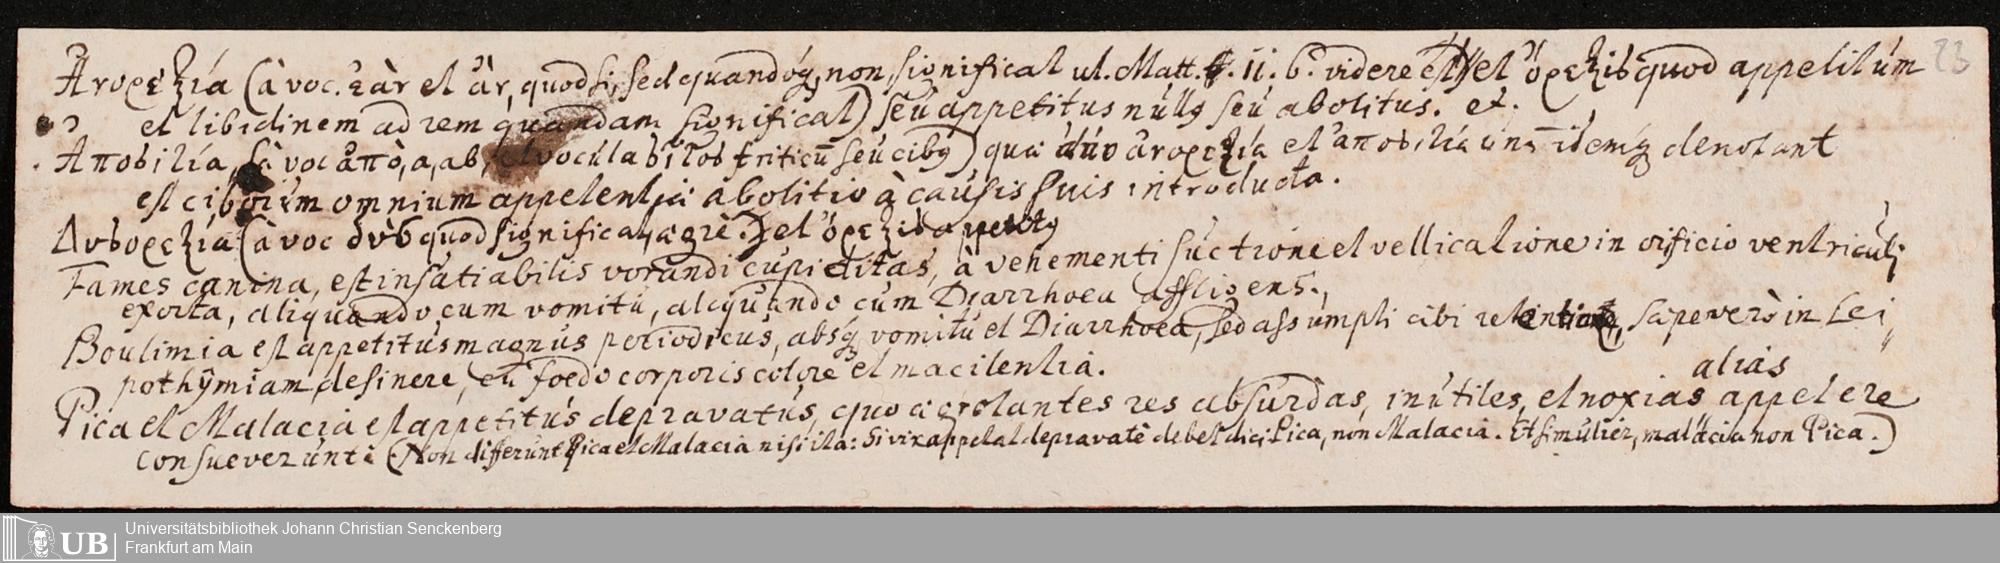 Ανορεξία (à voc. ἐὰν et ἂν, quod si, sed quandoq; non, significat ut. Matt. 11. 6. videre est) et ὄρεξις quod appetitum 23
et libidinem ad rem quandam significat) seu appetitus nullq seu abolitus. et.
Αποσιτία, (à voc ἀπὸ, a, ab, et vocula σῖτος triticū seu cibq) quæ duo ἀνορεξία et ἀποσιτία unū idemq; denotant
est ciborum omnium appetentiæ abolitio à causis suis introducta.
Δυσορεξία (à voc δὺς quod significat, ægrè.) et ὄρεξις appetitq
Fames canina, est insatiabilis vorandi cupiditas, à vehementi suctione et vellicatione in orificio ventriculi
exorta, aliquando cum vomitu, alıquando cum Diarrhoea affligens.
Boulimia est appetitus magnus periodicus, absq; vomitu et Diarrhoea, sed assumpti cibi retentione, sæpe verò in Lei,,
pothÿmiam, desinere, cū foedo corporis colore et macilentia.
alias
Pica et Malacia est appetitus depravatus, quo ægrotantes res absurdas, inutiles, et noxias appetere
consueverunt: (Non differunt Pica et Malacia nisi ita: Si vir appetat depravatè debet dici Pica, non Malacia. Et si mulier, malacia non Pica.)
Universitätsbibliothek Johann Christian Senckenberg
UB
Frankfurt am Main